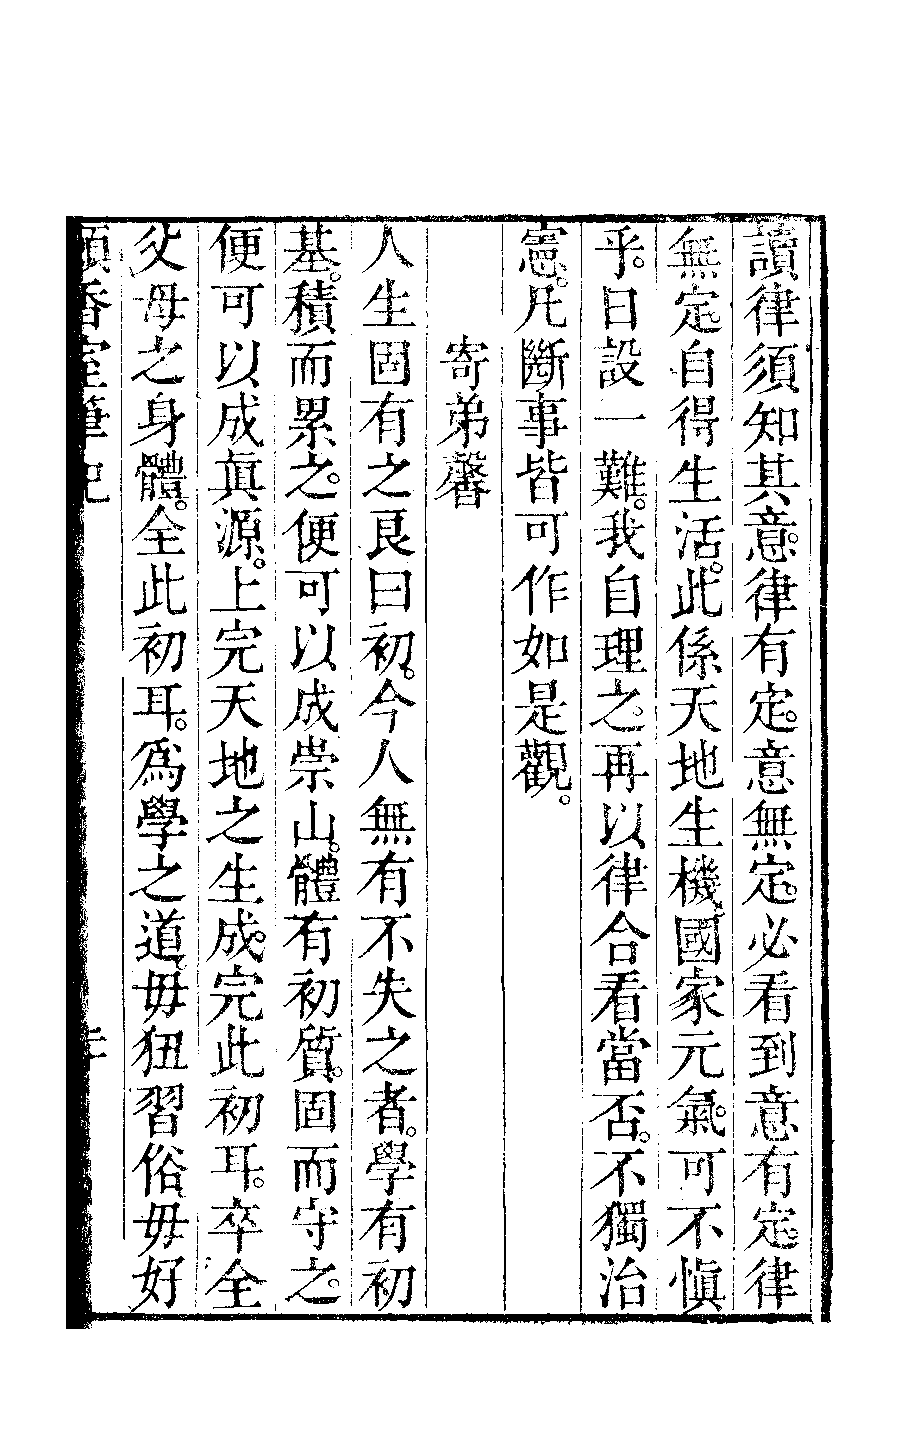 讀律須知其意。律有定。意無定。必看到意有定。律
無定。自得生活。此係天地生機。國家元氣。可不愼
乎。日設一難。我自理之。再以律合看當否。不獨治
憲。凡斷事皆可作如是觀。
寄弟馨
人生固有之良曰初。今人無有不失之者。學有初
基。積而累之。便可以成崇山。體有初質。固而守之。
便可以成眞源。上完天地之生成。完此初耳。卒全
父母之身體。全此初耳。爲學之道。毋狃習俗毋好